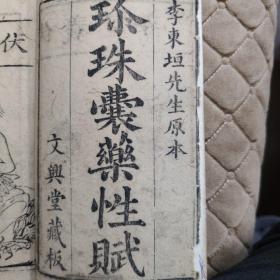 李東垣先生原本
珍珠囊藥性賦
文興堂藏板
伏